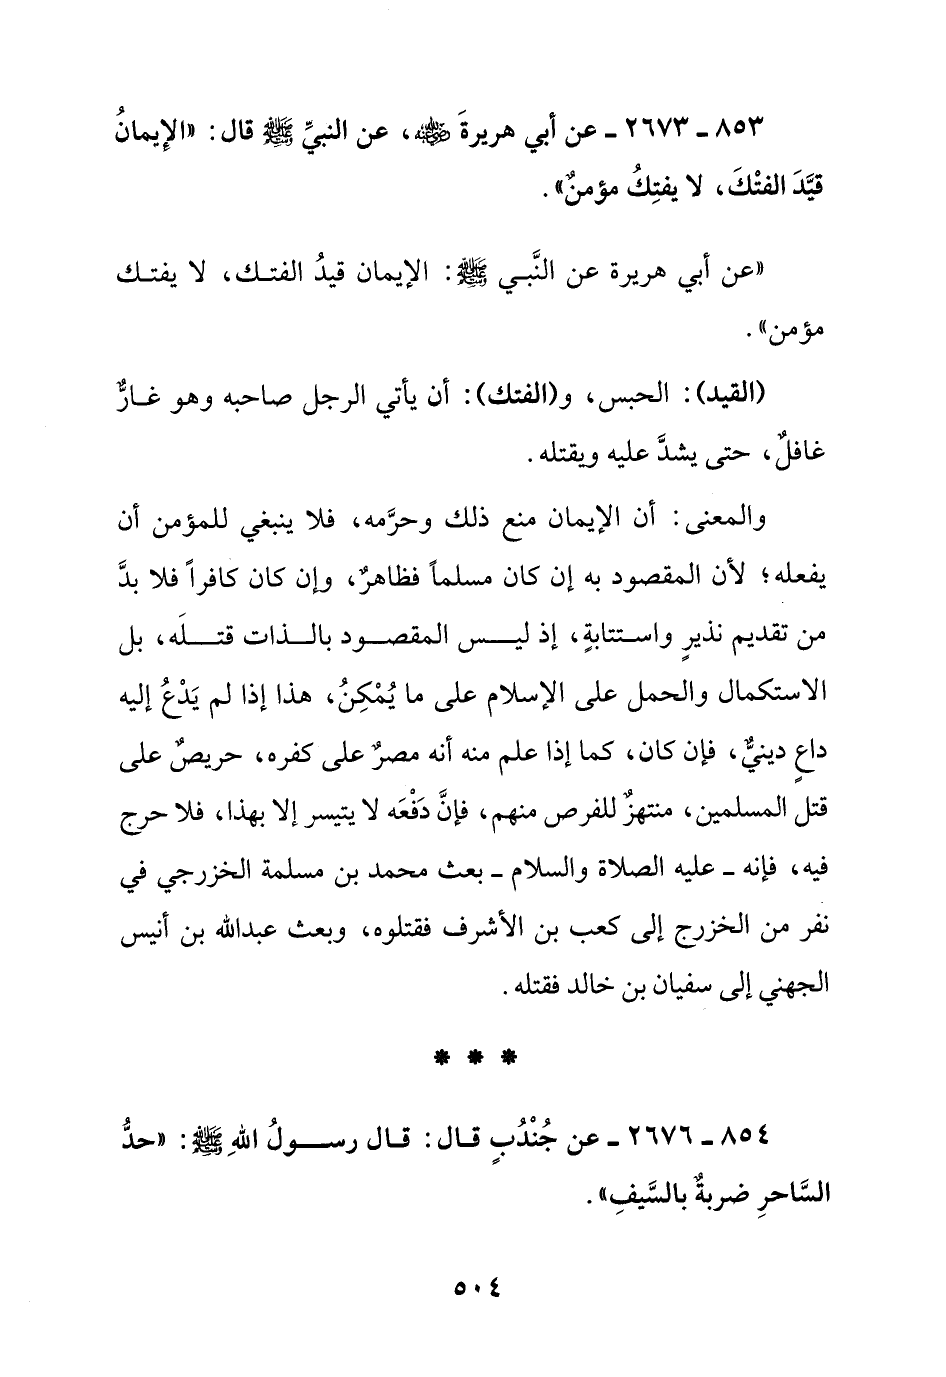 ٨٥٣ - ٢٦٧٣ - عن أبي هريرةَ رضي الله عنه، عن النبيِّ ﷺ قال: «الإيمانُ
قيَّدَ الفتْكَ، لا يفتِكُ مؤمنٌ».
«عن أبي هريرة عن النَّبي ﷺ: الإيمان قيدُ الفتك، لا يفتك
مؤمن».
(القيد): الحبس، و(الفتك): أن يأتي الرجل صاحبه وهو غارٌّ
غافلٌ، حتى يشدَّ عليه ويقتله.
والمعنى: أن الإيمان منع ذلك وحرَّمه، فلا ينبغي للمؤمن أن
يفعله؛ لأن المقصود به إن كان مسلماً فظاهرٌ، وإن كان كافراً فلا بدَّ
من تقديم نذيرٍ واستتابةٍ، إذ ليس المقصود بالذات قتلَه، بل
الاستكمال والحمل على الإسلام على ما يُمْكِنُ، هذا إذا لم يَدْعُ إليه
داعٍ دينيٌّ، فإن كان، كما إذا علم منه أنه مصرٌ على كفره، حريصٌ على
قتل المسلمين، منتهزٌ للفرص منهم، فإنَّ دَفْعَه لا يتيسر إلا بهذا، فلا حرج
فيه، فإنه - عليه الصلاة والسلام - بعث محمد بن مسلمة الخزرجي في
نفر من الخزرج إلى كعب بن الأشرف فقتلوه، وبعث عبدالله بن أنيس
الجهني إلى سفيان بن خالد فقتله.
* * *
٨٥٤ - ٢٦٧٦ - عن جُنْدُبٍ قال: قال رسولُ اللهِ ﷺ: «حدُّ
السَّاحرِ ضربةٌ بالسَّيفِ».
٥٠٤